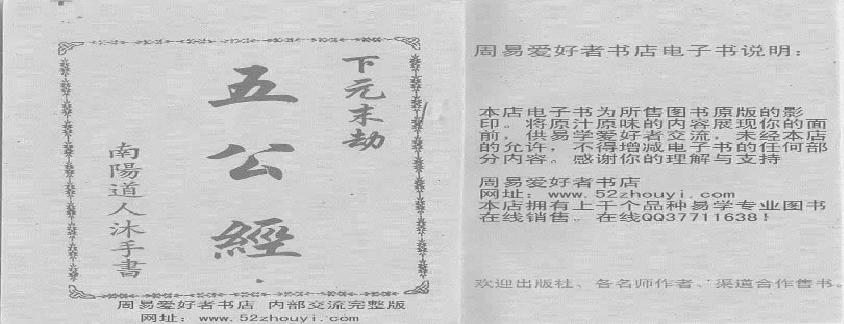 下元末劫
五公經
南陽道人沐手書
周易爱好者书店 内部交流完整版
网址：www.52zhouyi.com
周易爱好者书店电子书说明：
本店电子书为所售图书原版的影
印。将原汁原味的内容展现你的面
前，供易学爱好者交流，未经本店
的允许，不得增减电子书的任何部
分内容。感谢你的理解与支持
周易爱好者书店
网址：www.52zhouyi.com
本店拥有上千个品种易学专业图书
在线销售。在线QQ37711638！
欢迎出版社、各名师作者、渠道合作售书。